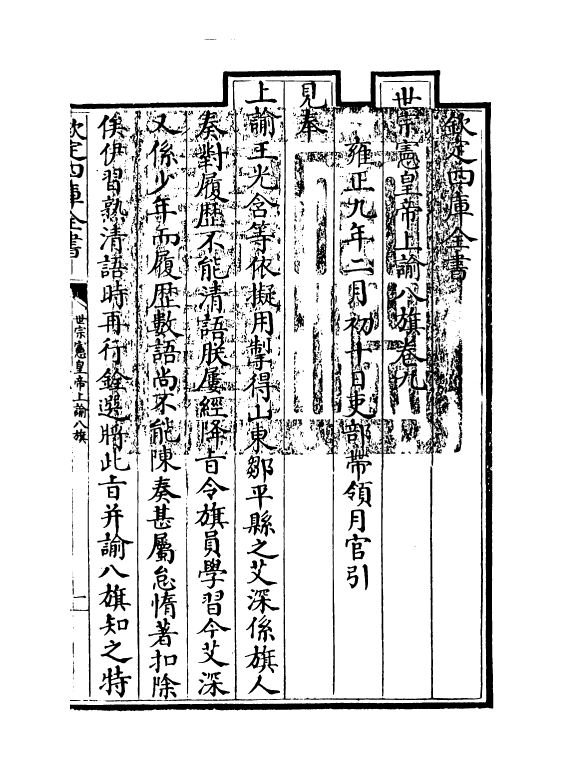 欽定四庫全書
世宗憲皇帝上諭八旗卷九
雍正九年二月初十日吏部帶領月官引
見奉
上諭王光含等依擬用掣得山東鄒平縣之艾深係旗人
奏對履歷不能清語朕屢經降㫖令旗員學習今艾深
又係少年而履歴數語尚不能陳奏甚屬怠惰著扣除
俟伊習熟清語時再行銓選將此㫖并諭八旗知之特
欽定四庫全書
世宗憲皇帝上諭八旗
一